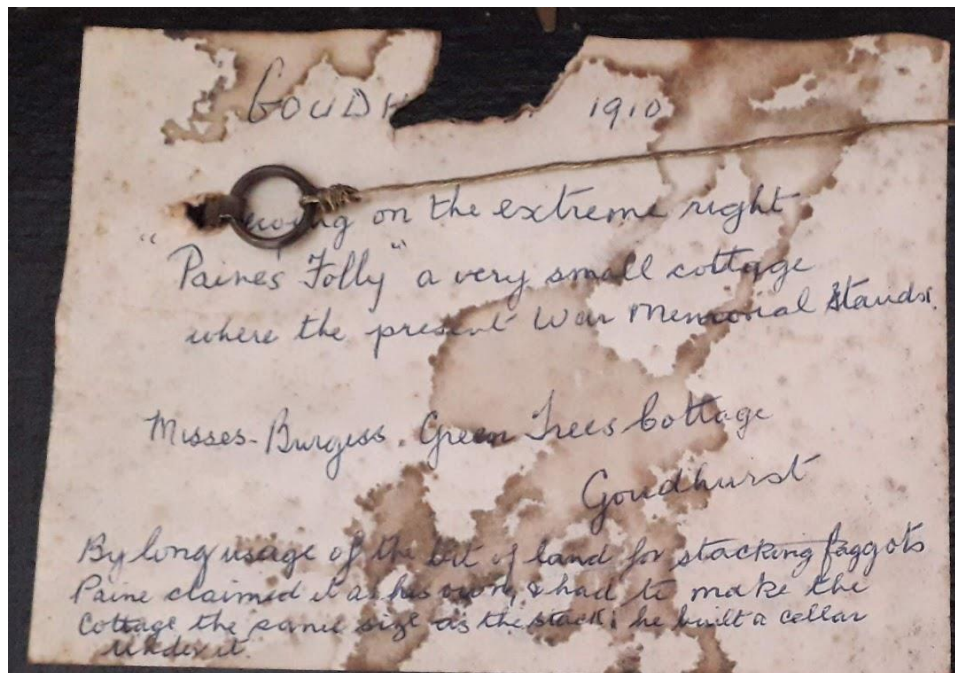 GOUDH 1910
on the extreme right
"Paine's Folly" a very small cottage
where the present War Memorial Stands.
Misses Burgess. Green Trees Cottage
Goudhurst
By long usage of the bit of land for stacking faggots
Paine claimed it as his own, & had to make the
Cottage the same size as the stack; he built a cellar
under it.